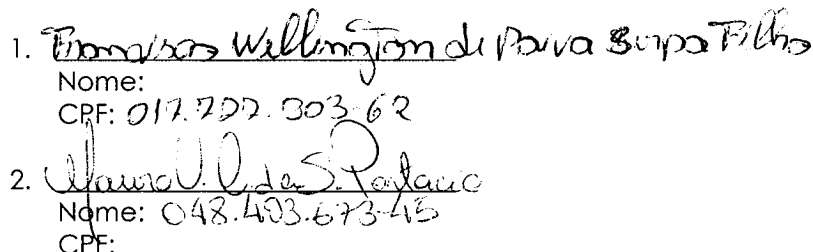 1. Francisco Wellington de Paiva Serpa Filho
Nome:
CPF: 017.
2. Mauro V. de S.
Nome: 048.403.673-45
CPF: